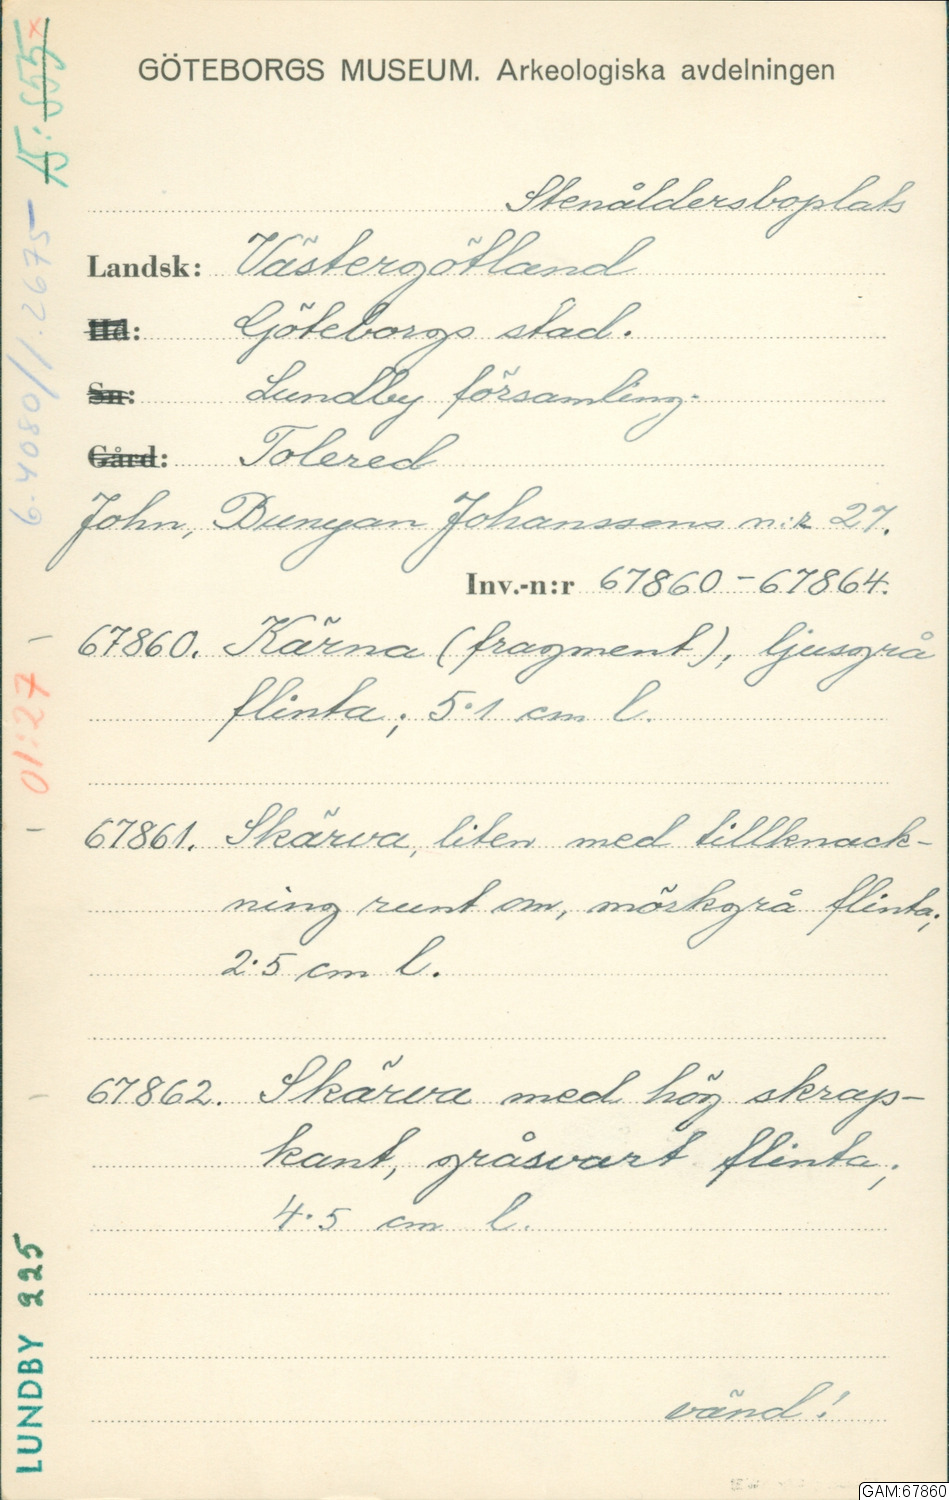 GÖTEBORGS MUSEUM. Arkeologiska avdelningen
Stenåldersboplats
Landsk: Västergötland
Hd: Göteborgs stad.
Sn: Lundby församling.
Gård: Tolered
John, Bunyan Johanssons n:r 27.
Inv.-n:r 67860-67864.
67860. Kärna (fragment), ljusgrå
flinta; 5.1 cm l.
67861. Skärva, liten med tillknack-
ning runt om, mörkgrå flinta;
2.5 cm l.
67862. Skärva med hög skrap-
kant, gråsvart flinta;
4.5 cm l.
vänd!
15:555x
6.4080/1.2675-
01:27
LUNDBY 225
GAM:67860